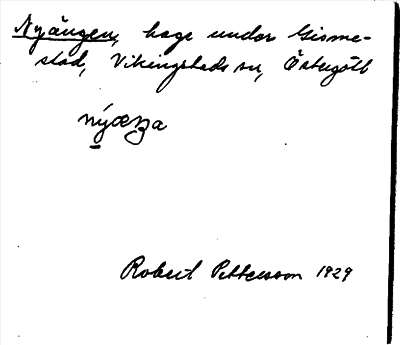 Nyängen, hage under Gisme-
stad, Vikingstads sn, Östergötl
Robert Pettersson 1929